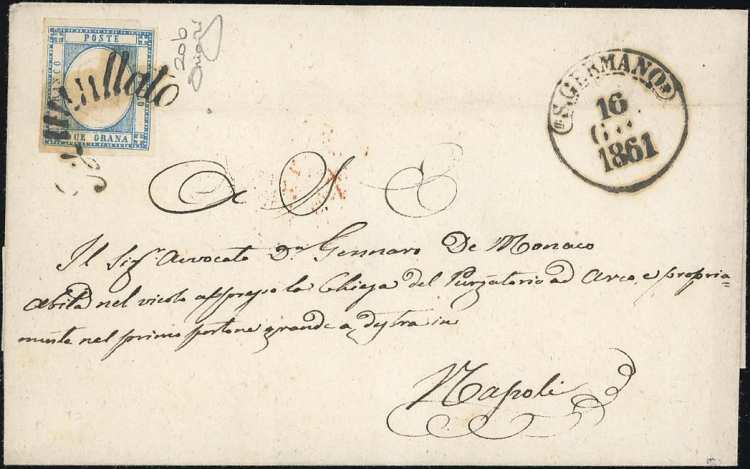 POSTE
FRANCO
DUE GRANA
Annullato
20b
S. GERMANO
16
GIU.
1861
A S E
Il Sig.r Avvocato Dn Gennaro De Monaco
abita nel vicolo appresso la Chiesa del Purgatorio ad Arco, e propria=
mente nel primo portone grande a destra in
Napoli